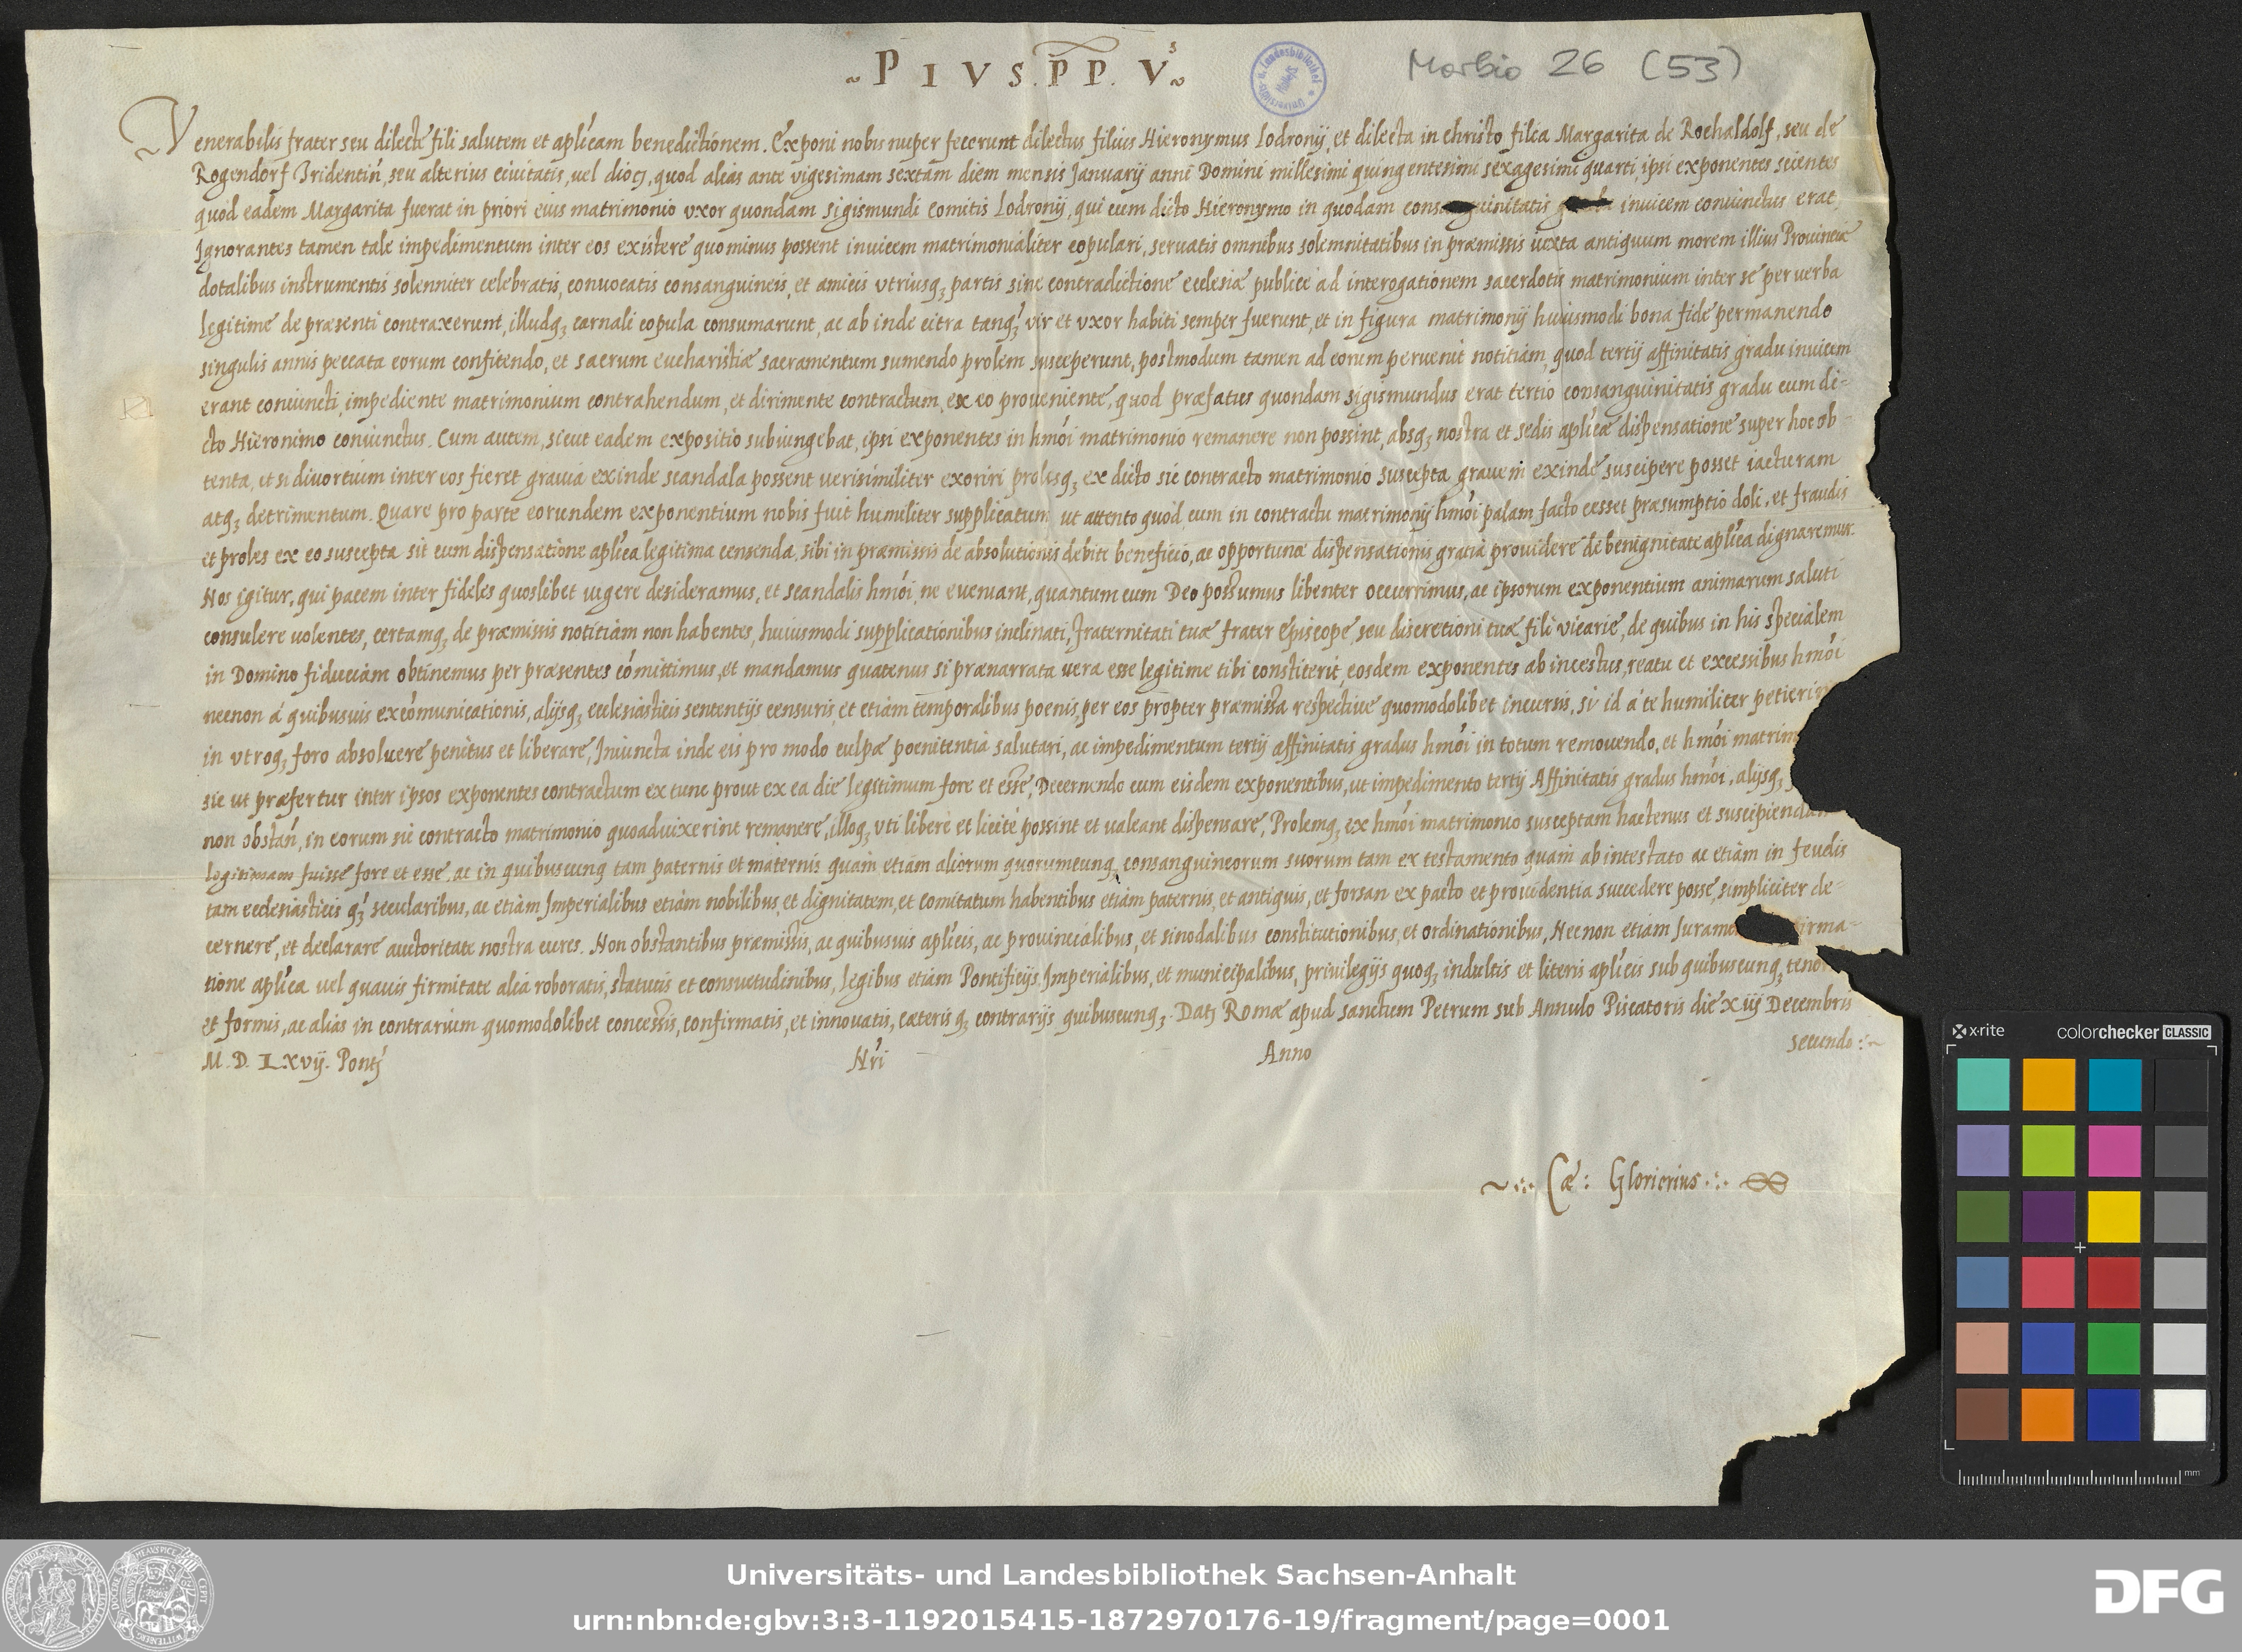 ~ P I V S . P P . V.s ~
Morbio 26 (53)
Venerabilis frater seu dilecte fili salutem et aplicam benedictionem. Exponi nobis nuper fecerunt dilectus filius Hieronymus Lodronij, et dilecta in christo filia Margarita de Rochaldolf, seu de
Rogendorf Tridentin, seu alterius ciuitatis, uel dioc, quod alias ante vigesimam sextam diem mensis Januarij anni Domini millesimi quingentesimi sexagesimi quarti, ipsi exponentes scientes
quod eadem Margarita fuerat in priori eius matrimonio vxor quondam Sigismundi comitis Lodronij, qui cum dicto Hieronymo in quodam inuicem coniunctus erat,
Ignorantes tamen tale impedimentum inter eos existere quominus possent inuicem matrimonialiter copulari, seruatis omnibus solemnitatibus in præmissis iuxta antiquum morem illius Prouinciæ
dotalibus instrumentis solenniter celebratis, conuocatis consanguineis, et amicis vtriusq; partis sine contradictione ecclesiæ publice ad interogationem sacerdotis matrimonium inter se per uerba
legitime de præsenti contraxerunt, illudq; carnali copula consumarunt, ac ab inde citra tanq; vir et vxor habiti semper fuerunt, et in figura matrimonij huiusmodi bona fide permanendo
singulis annis peccata eorum confitendo, et sacrum eucharistiæ sacramentum sumendo prolem susceperunt, postmodum tamen ad eorum peruenit notitiam, quod tertij affinitatis gradu inuicem
erant coniuncti, impediente matrimonium contrahendum, et dirimente contractum, ex eo proueniente, quod præfatus quondam Sigismundus erat tertio consanguinitatis gradu cum di-
cto Hieronimo coniunctus. Cum autem, sicut eadem expositio subiungebat, ipsi exponentes in hmoi matrimonio remanere non possint, absq; nostra et sedis aplicæ dispensatione super hoc ob-
tenta, et si diuortium inter eos fieret grauia exinde scandala possent uerisimiliter exoriri prolisq; ex dicto sic contracto matrimonio suscepta grauem exinde suscipere posset iacturam
atq; detrimentum. Quare pro parte eorundem exponentium nobis fuit humiliter supplicatum ut attento quod, cum in contractu matrimonij hmoi palam facto cesset præsumptio doli, et fraudis
et proles ex eo suscepta sit cum dispensatione aplica legitima censenda, sibi in præmissis de absolutionis debite beneficio, ac opportunæ dispensationis gratia prouidere de benignitate aplica dignaremur.
Nos igitur, qui pacem inter fideles quoslibet uigere desideramus, et scandalis hmoi, ne eueniant, quantum cum Deo possumus libenter occurrimus, ac ipsorum exponentium animarum saluti
consulere uolentes, certamq; de præmissis notitiam non habentes, huiusmodi supplicationibus inclinati, fraternitati tuæ frater Episcope, seu discretioni tuæ fili vicarie, de quibus in his specialem
in Domino fiduciam obtinemus per præsentes comittimus, et mandamus quatenus si prænarrata uera esse legitime tibi constiterit, eosdem exponentes ab incestus, reatu et excessibus hmoi
necnon á quibusuis excomunicationis, alijsq; ecclesiasticis sententijs censuris, et etiam temporalibus poenis, per eos propter præmissa respectiue quomodolibet incursis, si id á te humiliter
in vtroq; foro absoluere penitus et liberare, Iniuncta inde eis pro modo culpæ poenitentia salutari, ac impedimentum tertij affinitatis gradus hmoi in totum remouendo, et hmoi
sic ut præfertur inter ipsos exponentes contractum ex tunc prout ex ea die legitimum fore et esse, Decernendo cum eisdem exponentibus, ut impedimento tertij Affinitatis gradus hmoi, alijsq;
non obstan, in eorum sic contracto matrimonio quoaduixerint remanere, illoq; vti libere et licite possint et ualeant dispensare, Prolemq; ex hmoi matrimonio susceptam hactenus et
legitimam fuisse fore et esse, ac in quibuscunq tam paternis et maternis quam etiam aliorum quorumcunq; consanguineorum suorum tam ex testamento quam ab intestato ac etiam in feudis
tam ecclesiasticis q; secularibus, ac etiam Imperialibus etiam nobilibus, et dignitatem, et comitatum habentibus etiam paternis, et antiquis, et forsan ex pacto et prouidentia succedere posse, simpliciter de-
cernere, et declarare auctoritate nostra cures. Non obstantibus præmissis, ac quibusuis aplicis, ac prouincialibus, et sinodalibus constitutionibus, et ordinationibus, Necnon etiam
tione aplica uel quauis firmitate alia roboratis, statutis et consuetudinibus, legibus etiam Pontificijs, Imperialibus, et municipalibus, priuilegijs quoq; indultis et literis aplicis sub quibuscunq;
et formis, ac alias in contrarium quomodolibet concessis, confirmatis, et innouatis, cæteris q; contrarijs quibuscunq;. Dat Romæ apud sanctum Petrum sub Annulo Piscatoris die xiij Decembris
M. D. Lxvij. Pont Nri Anno secundo :~
~ Cæ: Glorierius
x-rite colorchecker CLASSIC
mm
Universitäts- und Landesbibliothek Sachsen-Anhalt
urn:nbn:de:gbv:3:3-1192015415-1872970176-19/fragment/page=0001
DFG